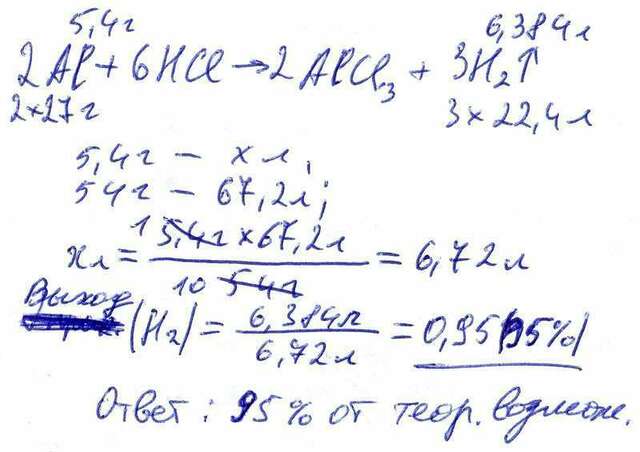 5,4г 6,384л
2Al + 6HCl → 2AlCl₃ + 3H₂↑
2×27г 3 × 22,4л
5,4г — x л,
54г — 67,2л;
xл = 1 5,4г × 67,2л / 10 54г = 6,72л
Выход (H₂) = 6,384л / 6,72л = 0,95 (95%)
Ответ: 95% от теор. возмож.